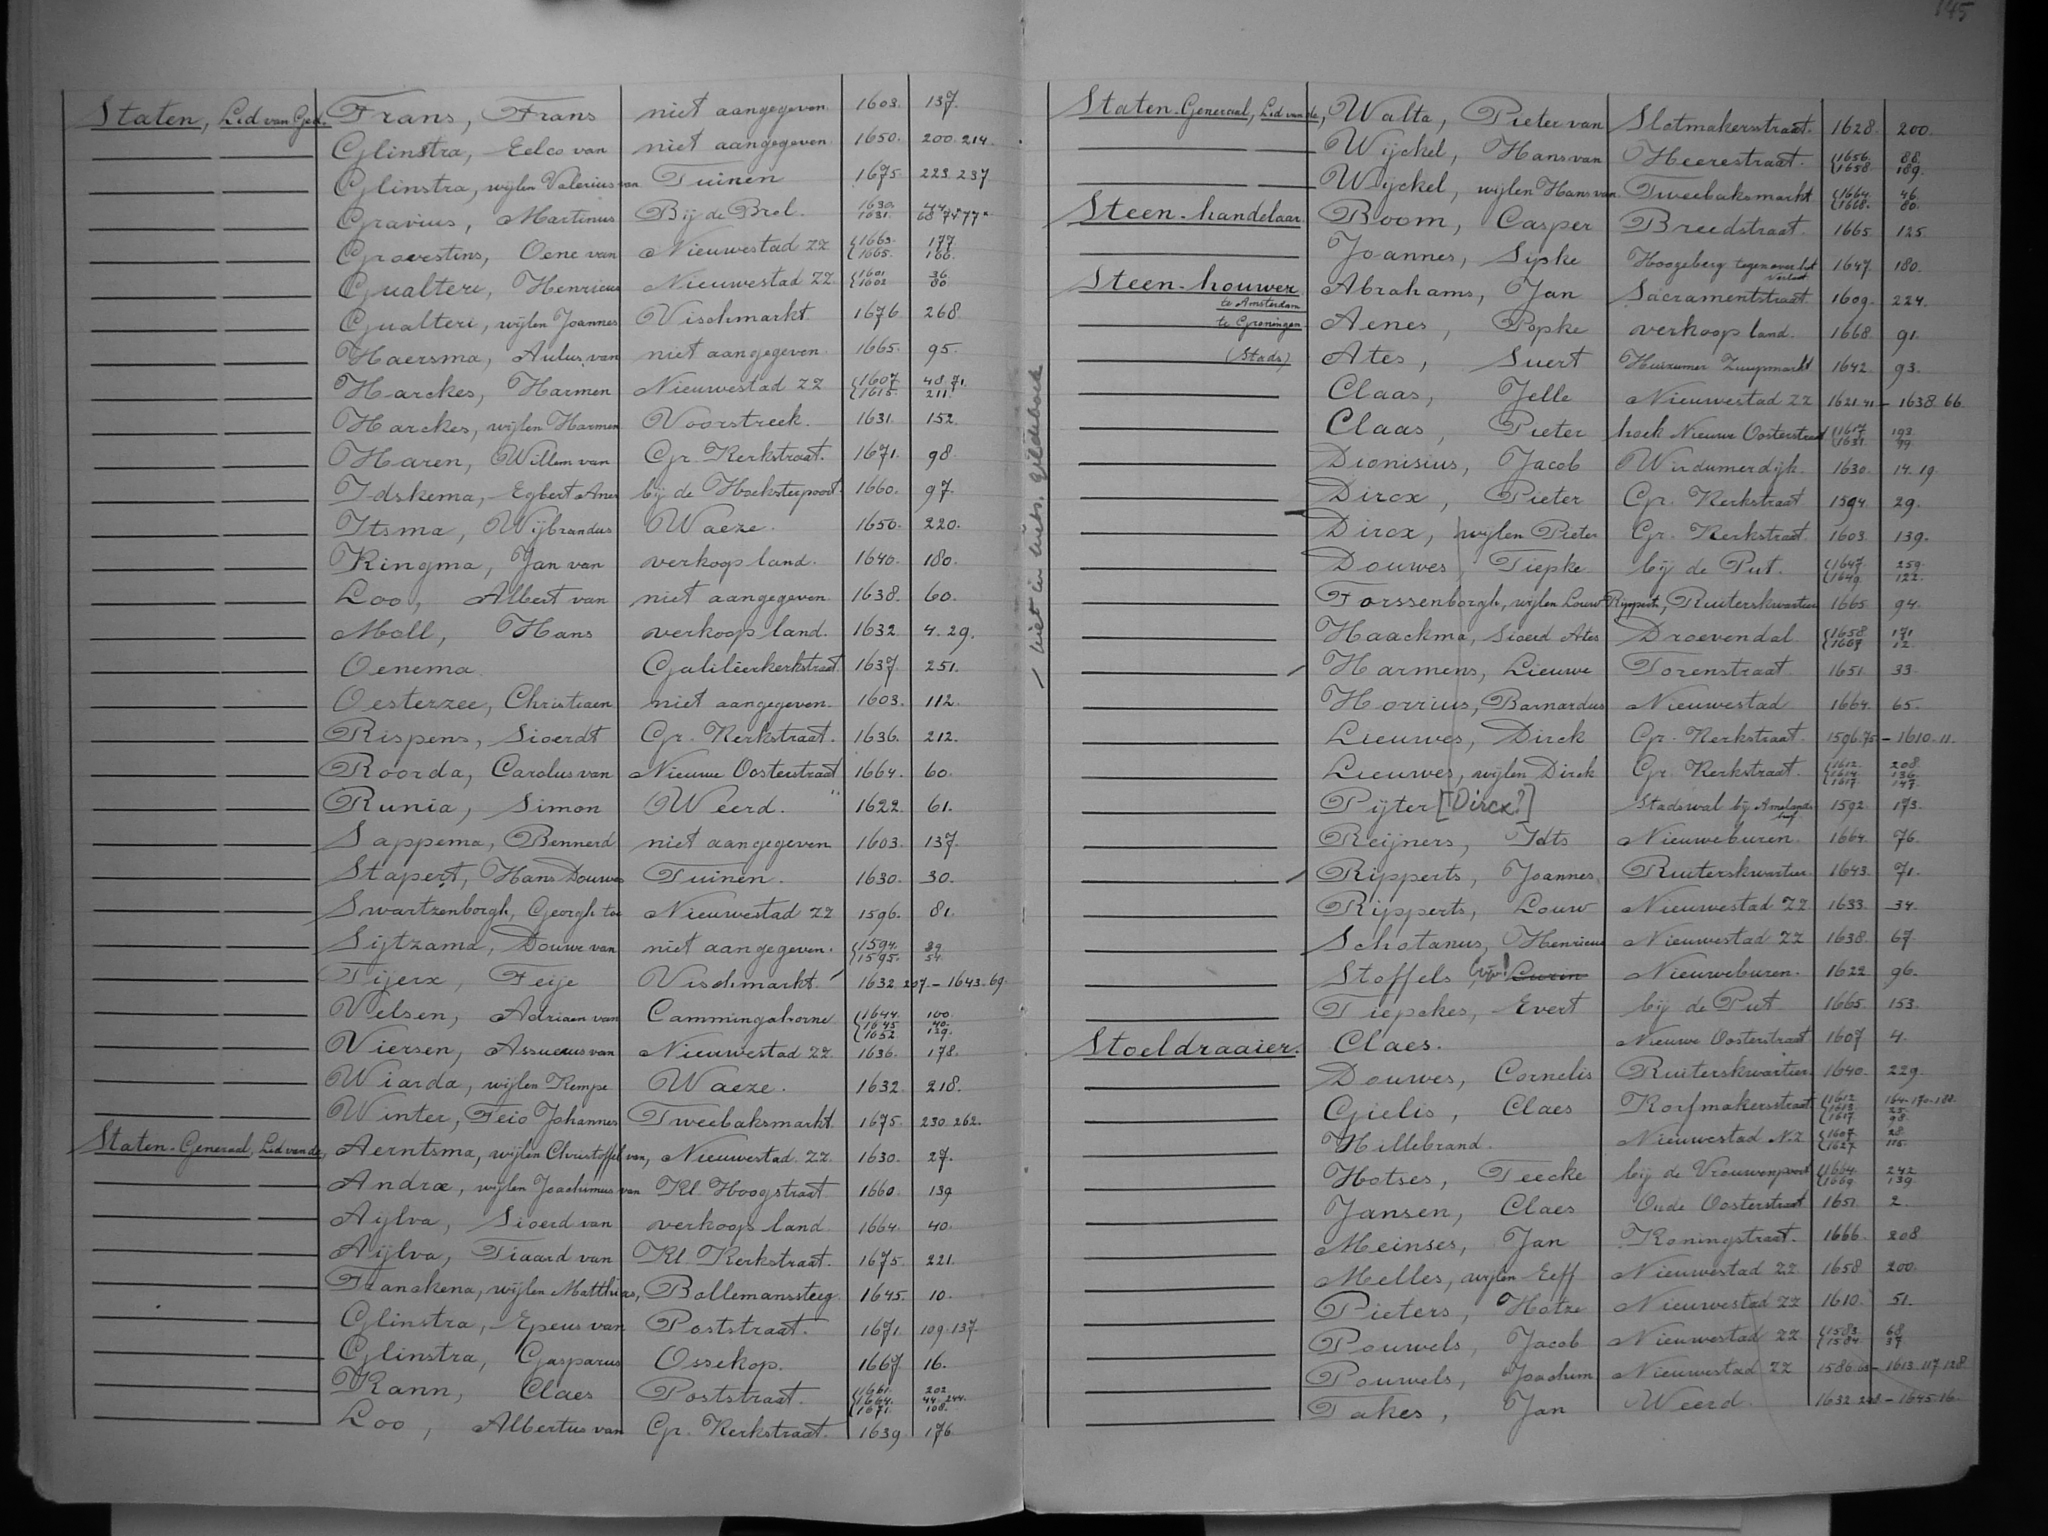 145
Staten, Lid van Ged. Frans, Frans niet aangegeven 1603. 137.
Glinstra, Eelco van niet aangegeven 1650. 200. 214.
Glinstra, wijlen Valerius van Tuinen 1675 223. 237
Gravius, Martinus Bij de Brol. 1630. 1631.
Grovestins, Oene van Nieuwestad ZZ 1663. 177 1665. 166.
Gualteri, Henricus Nieuwestad ZZ 1601 36 1602 80.
Gualteri, wijlen Joannes Vischmarkt. 1676 268.
Haersma, Aulus van niet aangegeven. 1665. 95.
Harckes, Harmen Nieuwestad ZZ 1607 48. 71. 1615. 211.
Harckes, wijlen Harmen Voorstreek. 1631. 152.
Haren, Willem van Gr. Kerkstraat. 1671. 98.
Idskema, Egbert Anes bij de Hoeksterpoort. 1660. 97.
Itsma, Wijbrandus Waeze. 1650. 220.
Kingma, Jan van verkoop land. 1640. 180.
Loo, Albert van niet aangegeven 1638. 60.
Moll, Hans verkoop land. 1632 4. 29.
Oenema Galileërkerkstraat 1637. 251.
Oesterzee, Christiaen niet aangegeven. 1603. 112.
Rispens, Sioerdt Gr. Kerkstraat. 1636. 212.
Roorda, Carolus van Nieuwe Oosterstraat 1664. 60.
Runia, Simon Weerd. 1622. 61.
Sappema, Bennerd niet aangegeven 1603. 137.
Stapert, Hans Douwes Tuinen. 1630. 30.
Swartzenborgh, Georgh toe Nieuwestad ZZ 1596. 81.
Sijtzama, Douwe van niet aangegeven. 1594. 89. 1595. 54.
Tijerx, Feije Vischmarkt. 1632. 207. - 1643. 69.
Velsen, Adriaen van Cammingahorne 1644. 100. 1645 40. 1652 139.
Viersen, Assuerus van Nieuwestad ZZ. 1636. 178.
Wiarda, wijlen Kempe Waeze. 1632 218.
Winter, Feio Johannes Tweebaksmarkt 1675. 230. 262.
Staten-Generaal, Lid van de, Aerntsma, wijlen Christoffel van, Nieuwestad ZZ. 1630. 27.
Andræ, wijlen Joachimus van Kl. Hoogstraat. 1660. 139
Aijlva, Sioerd van verkoop land 1664. 40.
Aijlva, Tiaard van Kl. Kerkstraat. 1675. 221.
Franckena, wijlen Matthias, Bollemanssteeg 1645. 10.
Glinstra, Epeus van Poststraat. 1671. 109. 137.
Glinstra, Gasparus Ossekop. 1667. 16.
Kann, Claes Poststraat. 1661. 202 1664. 44. 244. 1671. 108.
Loo, Albertus van Gr. Kerkstraat. 1639 176.
/ niet in gildeboek
Staten-Generaal, Lid van de, Walta, Pieter van Slotmakersstraat. 1628. 200.
Wijckel, Hans van Heerestraat. 1656. 88. 1658. 189.
Wijckel, wijlen Hans van Tweebaksmarkt 1664. 46. 1668. 80.
Steen-handelaar Boom, Casper Breedstraat. 1665 125.
Joannes, Sipke Hoogeberg tegenover het Verlaat 1647. 180.
Steen-houwer Abrahams, Jan Sacramentstraat. 1609. 224.
te Amsterdam
te Groningen Aenes, Popke verkoop land. 1668. 91.
(Stads) Ates, Suert Huizumer Zuupmarkt 1642. 93.
Claas, Jelle Nieuwestad ZZ 1621. 41 - 1638. 66.
Claas, Pieter hoek Nieuwe Oosterstraat 1617 193. 1631.
Dionisius, Jacob Wirdumerdijk. 1630. 14. 19.
Dircx, Pieter Gr. Kerkstraat 1594. 29.
Dircx, wijlen Pieter Gr. Kerkstraat. 1603. 139.
Douwes, Tiepke bij de Put. 1647. 259. 1649. 122.
Forssenborgh, wijlen Louw Ripperts, Ruiterskwartier 1665 94.
Haackma, Sioerd Ates Droevendal. 1658 171 1667 12.
Harmens, Lieuwe Torenstraat. 1651. 33.
Horrius, Barnardus Nieuwestad 1664. 65.
Lieuwes, Dirck Gr. Kerkstraat. 1596. 75 - 1610. 11.
Lieuwes, wijlen Dirck Gr. Kerkstraat. 1612. 208. 1614. 136. 1617. 147.
Pijter [Dircx?] Stadswal bij Amelands hof. 1592. 173.
Reijners, Idts Nieuweburen. 1664. 76.
Ripperts, Joannes, Ruiterskwartier 1643. 71.
Ripperts, Louw Nieuwestad ZZ 1633. 34.
Schotanus, Henricus Nieuwestad ZZ 1638. 67
Stoffels, Nieuweburen. 1622. 96.
Tiepckes, Evert bij de Put 1665. 153.
Stoeldraaier. Claes. Nieuwe Oosterstraat 1607 4.
Douwes, Cornelis Ruiterskwartier. 1640. 229.
Gielis, Claes Korfmakersstraat 1612 164. 170. 188. 1613. 25. 1617 98.
Hillebrand. Nieuwestad NZ 1607. 28. 1627. 115.
Hotses, Teecke bij de Vrouwenpoort 1664. 242 1669. 139.
Jansen, Claes Oude Oosterstraat 1651. 2.
Meinses, Jan Koningstraat. 1666. 208
Melles, wijlen Eeff Nieuwestad ZZ 1658 200.
Pieters, Hotze Nieuwestad ZZ 1610. 51.
Pouwels, Jacob Nieuwestad ZZ 1583. 68 1584. 37.
Pouwels, Joachim Nieuwestad ZZ 1580. 63 - 1613. 117. 128.
Takes, Jan Weerd. 1632. 208 - 1645. 16.